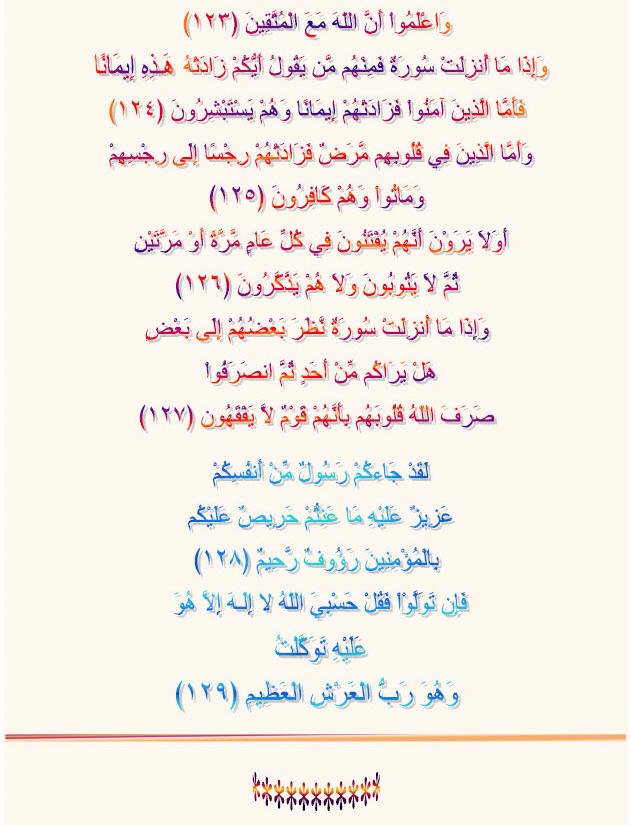 وَاعْلَمُواْ أَنَّ اللّهَ مَعَ الْمُتَّقِينَ (١٢٣)
وَإِذَا مَا أُنزِلَتْ سُورَةٌ فَمِنْهُم مَّن يَقُولُ أَيُّكُمْ زَادَتْهُ هَـذِهِ إِيمَانًا
فَأَمَّا الَّذِينَ آمَنُواْ فَزَادَتْهُمْ إِيمَانًا وَهُمْ يَسْتَبْشِرُونَ (١٢٤)
وَأَمَّا الَّذِينَ فِي قُلُوبِهِم مَّرَضٌ فَزَادَتْهُمْ رِجْسًا إِلَى رِجْسِهِمْ
وَمَاتُواْ وَهُمْ كَافِرُونَ (١٢٥)
أَوَلاَ يَرَوْنَ أَنَّهُمْ يُفْتَنُونَ فِي كُلِّ عَامٍ مَّرَّةً أَوْ مَرَّتَيْنِ
ثُمَّ لاَ يَتُوبُونَ وَلاَ هُمْ يَذَّكَّرُونَ (١٢٦)
وَإِذَا مَا أُنزِلَتْ سُورَةٌ نَّظَرَ بَعْضُهُمْ إِلَى بَعْضٍ
هَلْ يَرَاكُم مِّنْ أَحَدٍ ثُمَّ انصَرَفُواْ
صَرَفَ اللّهُ قُلُوبَهُم بِأَنَّهُمْ قَوْمٌ لاَّ يَفْقَهُون (١٢٧)
لَقَدْ جَاءكُمْ رَسُولٌ مِّنْ أَنفُسِكُمْ
عَزِيزٌ عَلَيْهِ مَا عَنِتُّمْ حَرِيصٌ عَلَيْكُم
بِالْمُؤْمِنِينَ رَؤُوفٌ رَّحِيمٌ (١٢٨)
فَإِن تَوَلَّوْاْ فَقُلْ حَسْبِيَ اللّهُ لا إِلَـهَ إِلاَّ هُوَ
عَلَيْهِ تَوَكَّلْتُ
وَهُوَ رَبُّ الْعَرْشِ الْعَظِيمِ (١٢٩)